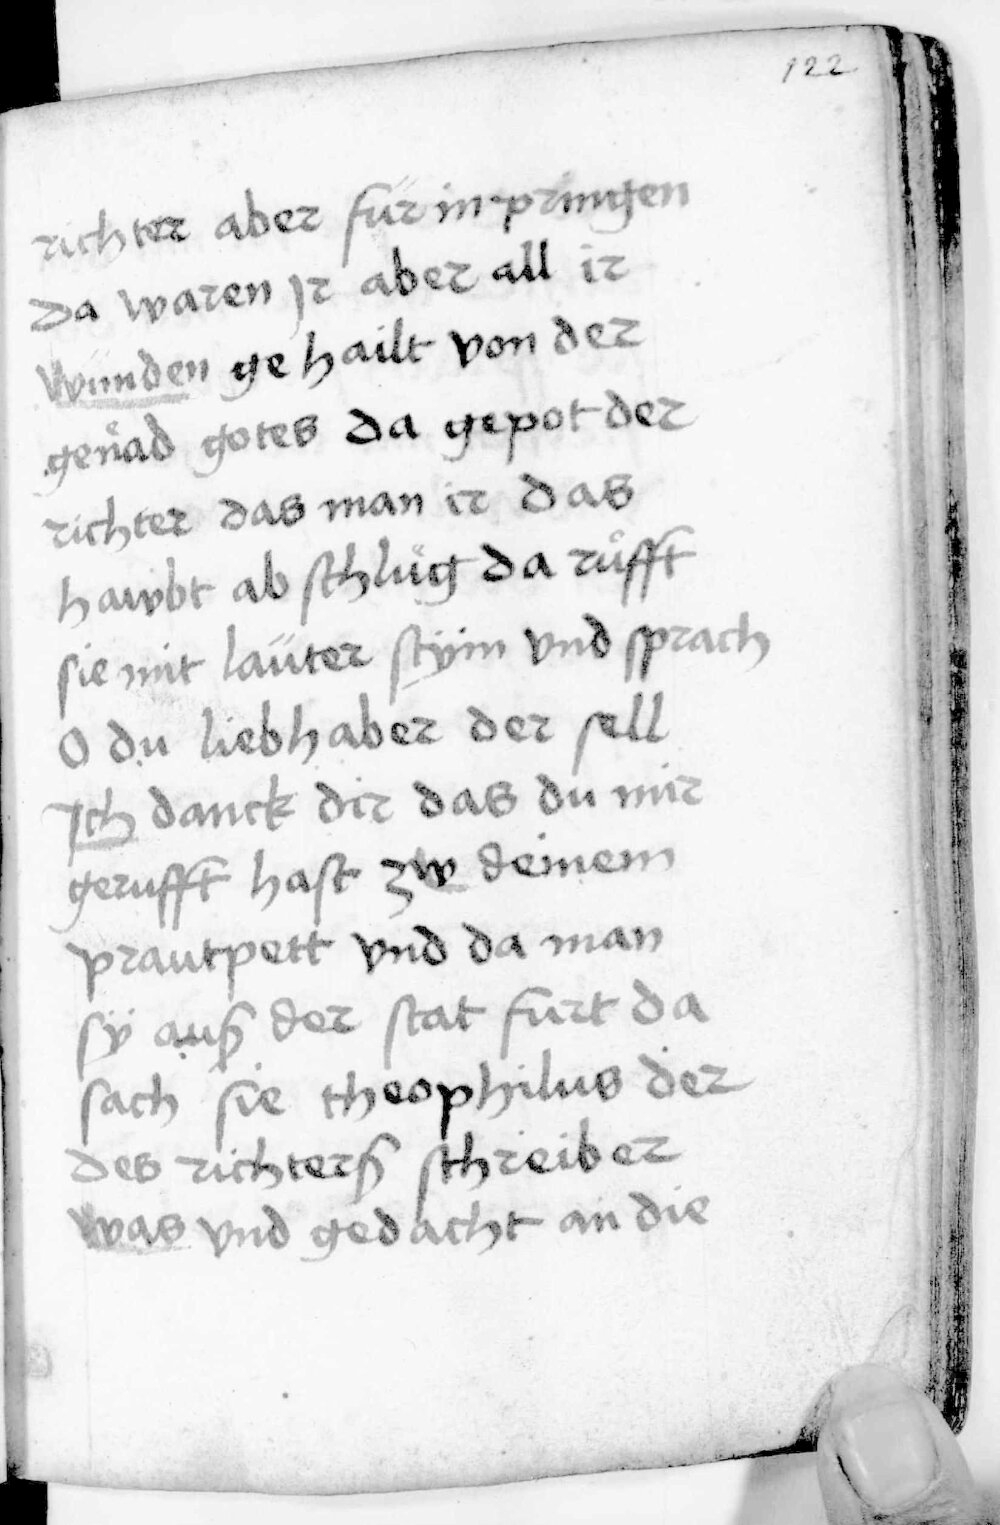 122
richter aber für in pringen
da waren Ir aber all ir
wunden gehailt von der
genad gotes da gepot der
richter das man ir das
hawbt ab schlüg da rüfft
sie mit laüter stÿm vnd sprach
O du liebhaber der sell
Ich danck dir das du mir
gerufft hast zw deinem
prautpett vnd da man
sÿ auß der stat furt da
sach sie theophilus der
des richterß schreiber
was vnd gedacht an die